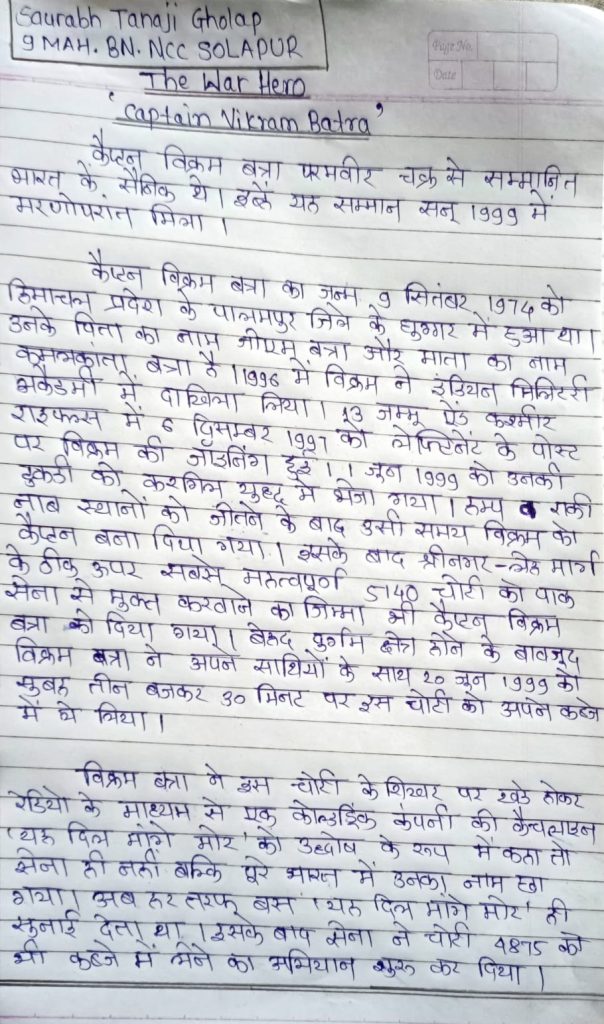 Saurabh Tanaji Gholap
9 MAH. BN. NCC SOLAPUR
Page No.
Date
The War Hero
'Captain Vikram Batra'
कैप्टन विक्रम बत्रा परमवीर चक्र से सम्मानित
भारत के सैनिक थे। इन्हें यह सम्मान सन् 1999 में
मरणोपरांत मिला।
कैप्टन विक्रम बत्रा का जन्म 9 सितंबर 1974 को
हिमाचल प्रदेश के पालमपुर जिले के घुग्गर में हुआ था।
उनके पिता का नाम जीएम बत्रा और माता का नाम
कमलकांता बत्रा है। 1996 में विक्रम ने इंडियन मिलिटरी
अकैडमी में दाखिला लिया। 13 जम्मू एंड कश्मीर
राइफल्स में 6 दिसम्बर 1997 को लेफ्टिनेंट के पोस्ट
पर विक्रम की जॉइनिंग हुई। 1 जून 1999 को उनकी
टुकडी को करगिल युध्द में भेजा गया। हम्प व राकी
नाब स्थानों को जीतने के बाद उसी समय विक्रम को
कैप्टन बना दिया गया। इसके बाद श्रीनगर-लेह मार्ग
के ठीक ऊपर सबसे महत्वपूर्ण 5140 चोटी को पाक
सेना से मुक्त करवाने का जिम्मा भी कैप्टन विक्रम
बत्रा को दिया गया। बेहद दुर्गम क्षेत्र होने के बावजूद
विक्रम बत्रा ने अपने साथियों के साथ 20 जून 1999 को
सुबह तीन बजकर 30 मिनट पर इस चोटी को अपने कब्जे
में ले लिया।
विक्रम बत्रा ने इस चोटी के शिखर पर खडे होकर
रेडियो के माध्यम से एक कोल्डड्रिंक कंपनी की कैचलाइन
'यह दिल मांगे मोर' को उद्घोष के रूप में कहा तो
सेना ही नहीं बल्कि पूरे भारत में उनका नाम छा
गया। अब हर तरफ बस 'यह दिल मांगे मोर' ही
सुनाई देता था। इसके बाद सेना ने चोटी 4875 को
भी कब्जे में लेने का अभियान शुरू कर दिया।